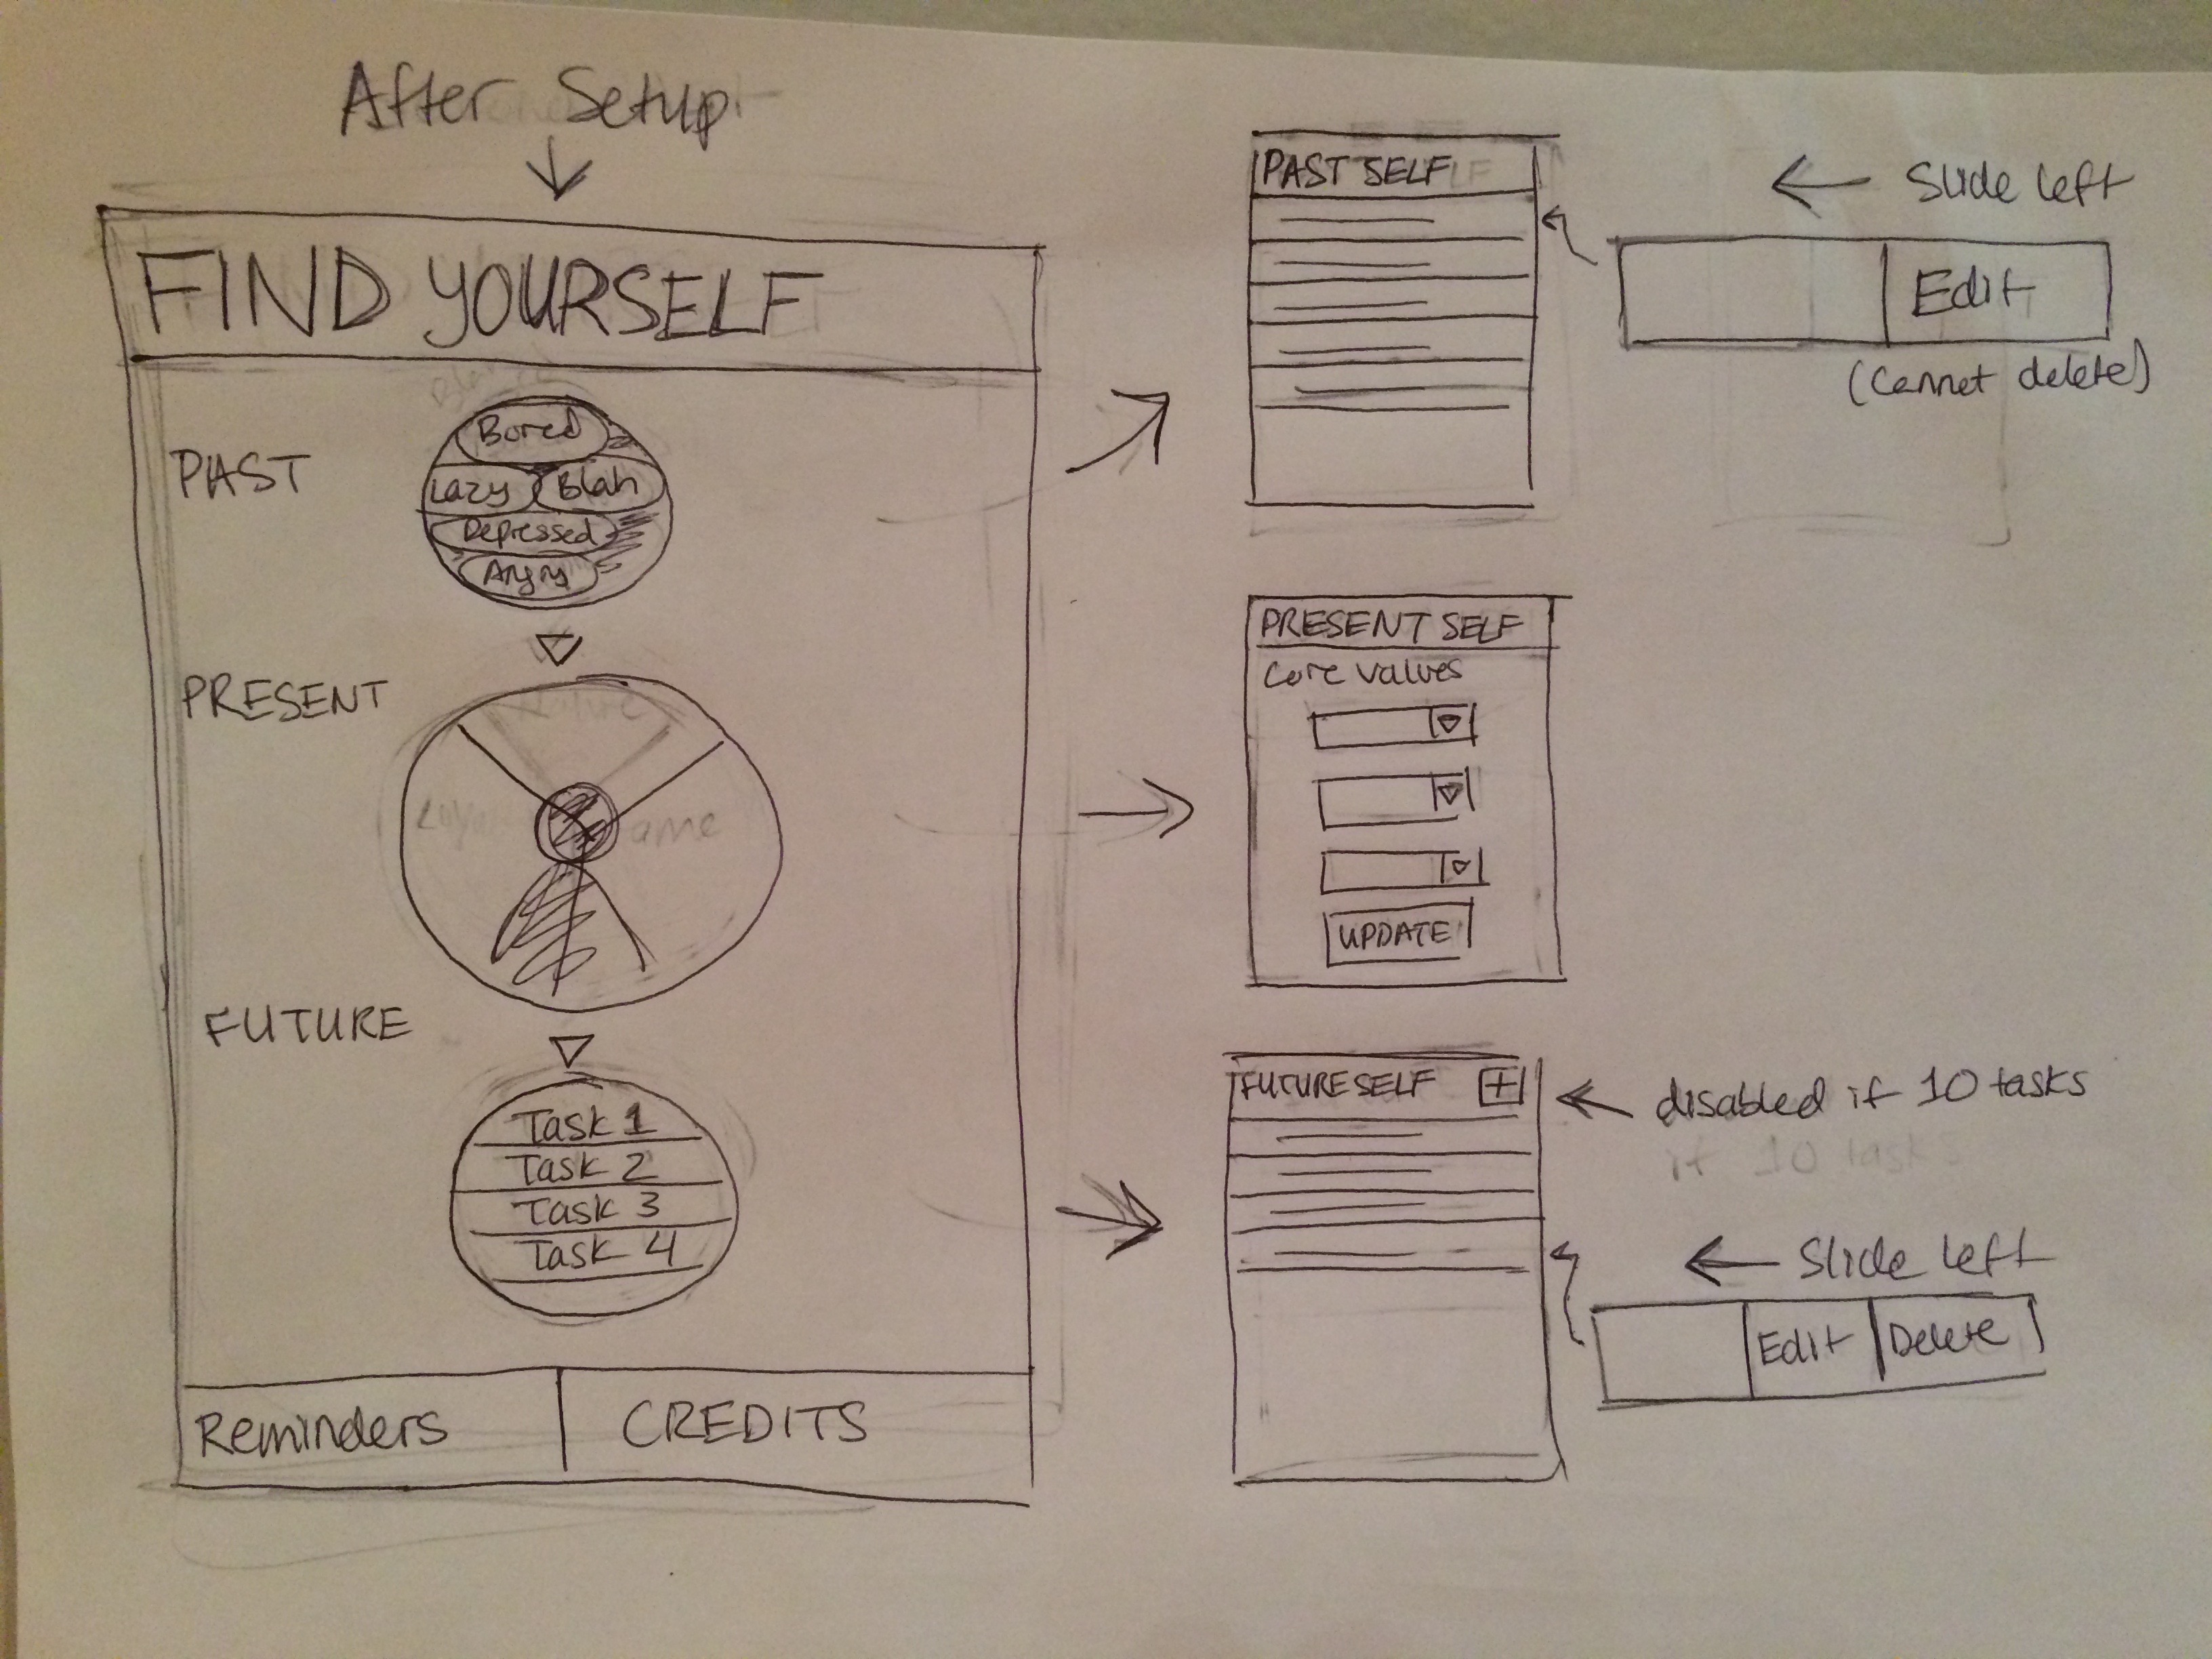 After Setup
FIND YOURSELF
PAST
Bored
Lazy Blah
Depressed
Angry
PRESENT
FUTURE
Task 1
Task 2
Task 3
Task 4
Reminders CREDITS
PAST SELF
Slide left
Edit
(Cannot delete)
PRESENT SELF
Core values
UPDATE
FUTURE SELF +
disabled if 10 tasks
if 10 tasks
Slide left
Edit Delete